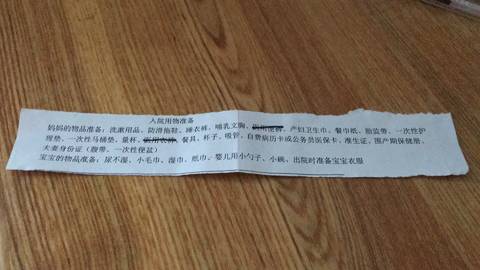 入院用物准备
妈妈的物品准备：洗漱用品、防滑拖鞋、睡衣裤、哺乳文胸、产妇卫生巾、餐巾纸、胎监带、一次性护
理垫、一次性马桶垫、量杯、餐具、杯子、吸管、自费病历卡或公务员医保卡、准生证、围产期保健册、
夫妻身份证（腹带、一次性便盆）
宝宝的物品准备：尿不湿、小毛巾、湿巾、纸巾、婴儿用小勺子、小碗、出院时准备宝宝衣服